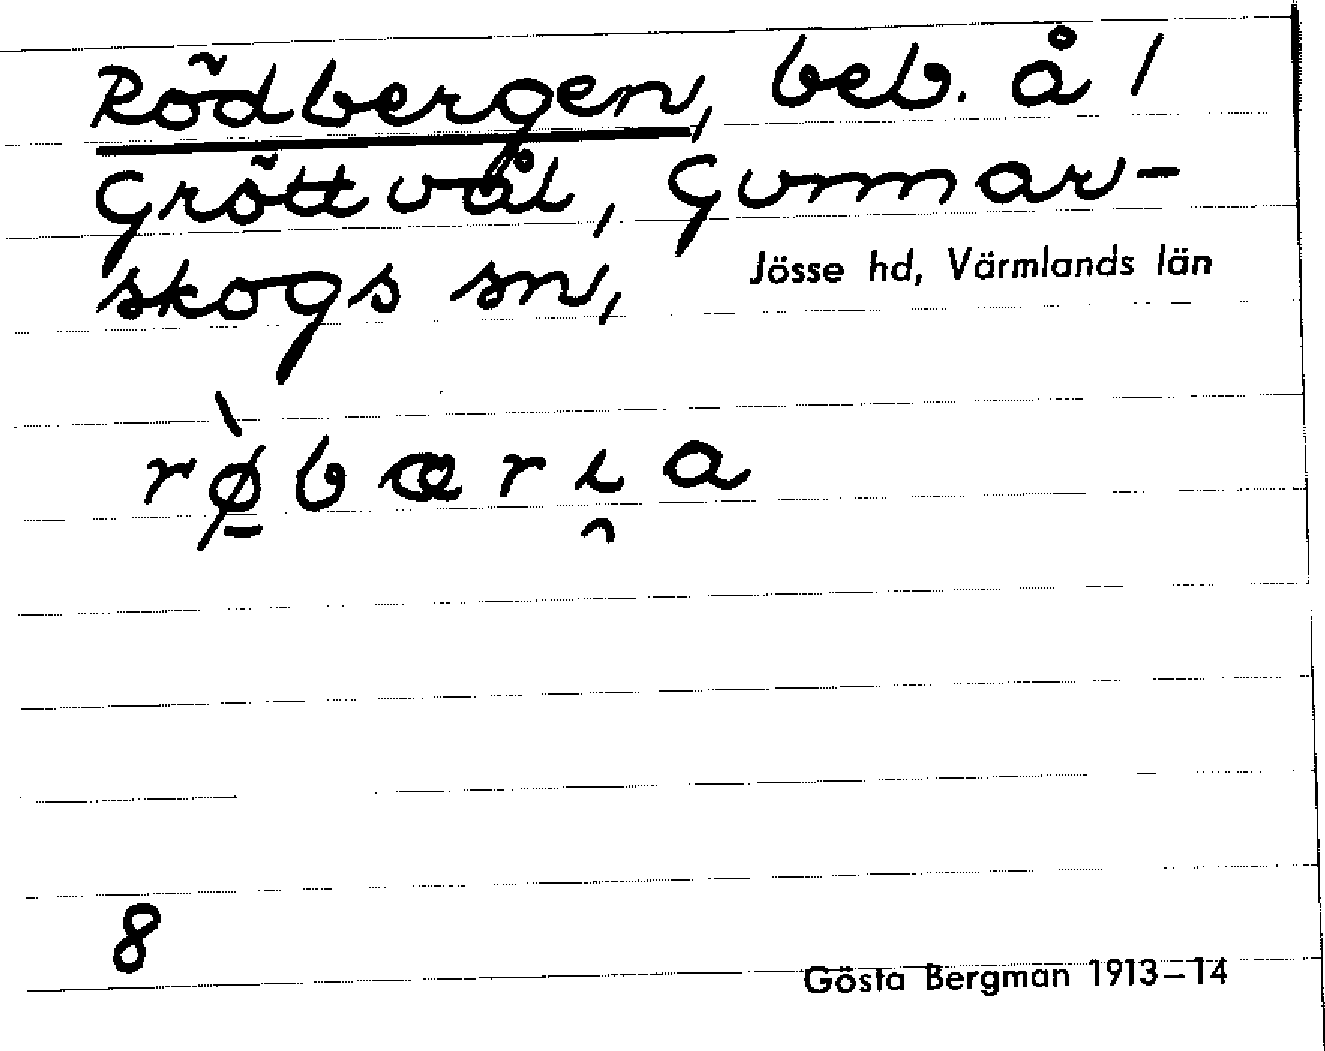 Rödbergen, beb. å 1
Gröttvål, Gunnar-
skogs sn, Jösse hd, Värmlands län
rø̀bærı̯a
8
Gösta Bergman 1913–14